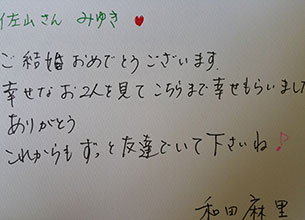 佐山さん みゆき ♥
ご結婚おめでとうございます。
幸せなお2人を見てこちらまで幸せもらいまして
ありがとう
これからもずっと友達でいて下さいね♪
和田麻里